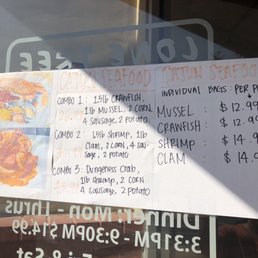 CAJUN SEAFOOD
COMBO 1 : 1.5lb CRAWFISH,
1lb MUSSEL, 2 CORN
4 SAUSAGE, 2 POTATO
COMBO 2 : 1.5lb SHRIMP, 1lb
CLAM, 2 CORN, 4 SAU-
SAGE, 2 POTATO
COMBO 3 : DUNGENESS CRAB,
1lb SHRIMP, 2 CORN
4 SAUSAGE, 2 POTATO
CAJUN SEAFOO
INDIVIDUAL BAGS : PER P
MUSSEL : $ 12.99
CRAWFISH : $ 12.9
SHRIMP : $ 14.9
CLAM : $ 14.9
Dinner: Mon - Thurs
3:31PM - 9:30PM $14.99
Fri & Sat